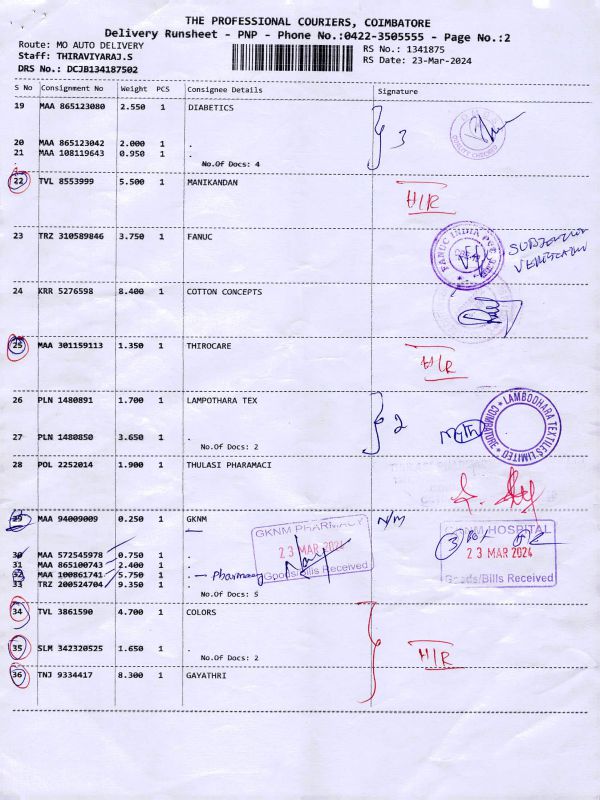 THE PROFESSIONAL COURIERS, COIMBATORE
Delivery Runsheet - PNP - Phone No.:0422-3505555 - Page No.:2
Route: MO AUTO DELIVERY
RS No.: 1341875
Staff: THIRAVIYARAJ.S
RS Date: 23-Mar-2024
DRS No.: DCJB134187502
S No Consignment No Weight PCS Consignee Details Signature
19 MAA 865123080 2.550 1 DIABETICS
3
20 MAA 865123042 2.000 1 .
21 MAA 108119643 0.950 1 .
No.Of Docs: 4
22 TVL 8553999 5.500 1 MANIKANDAN
H/R
23 TRZ 310589846 3.750 1 FANUC
FANUC INDIA PVT
SUBJECT TO
VERIFICATION
24 KRR 5276598 8.400 1 COTTON CONCEPTS
25 MAA 301159113 1.350 1 THIROCARE
H/R
26 PLN 1480891 1.700 1 LAMPOTHARA TEX
2
LAMBODHARA TEXTILES LIMITED
COIMBATORE
27 PLN 1480850 3.650 1 .
No.Of Docs: 2
28 POL 2252014 1.900 1 THULASI PHARAMACI
29 MAA 94009009 0.250 1 GKNM
N/M
GKNM PHARMACY
23 MAR 2024
Goods/Bills Received
GKNM HOSPITAL
3
23 MAR 2024
Goods/Bills Received
30 MAA 572545978 0.750 1 .
31 MAA 865100743 2.400 1 .
32 MAA 100861741 5.750 1 . - pharmacy
33 TRZ 200524704 9.350 1 .
No.Of Docs: 5
34 TVL 3861590 4.700 1 COLORS
35 SLM 342320525 1.650 1 .
No.Of Docs: 2
H/R
36 TNJ 9334417 8.300 1 GAYATHRI